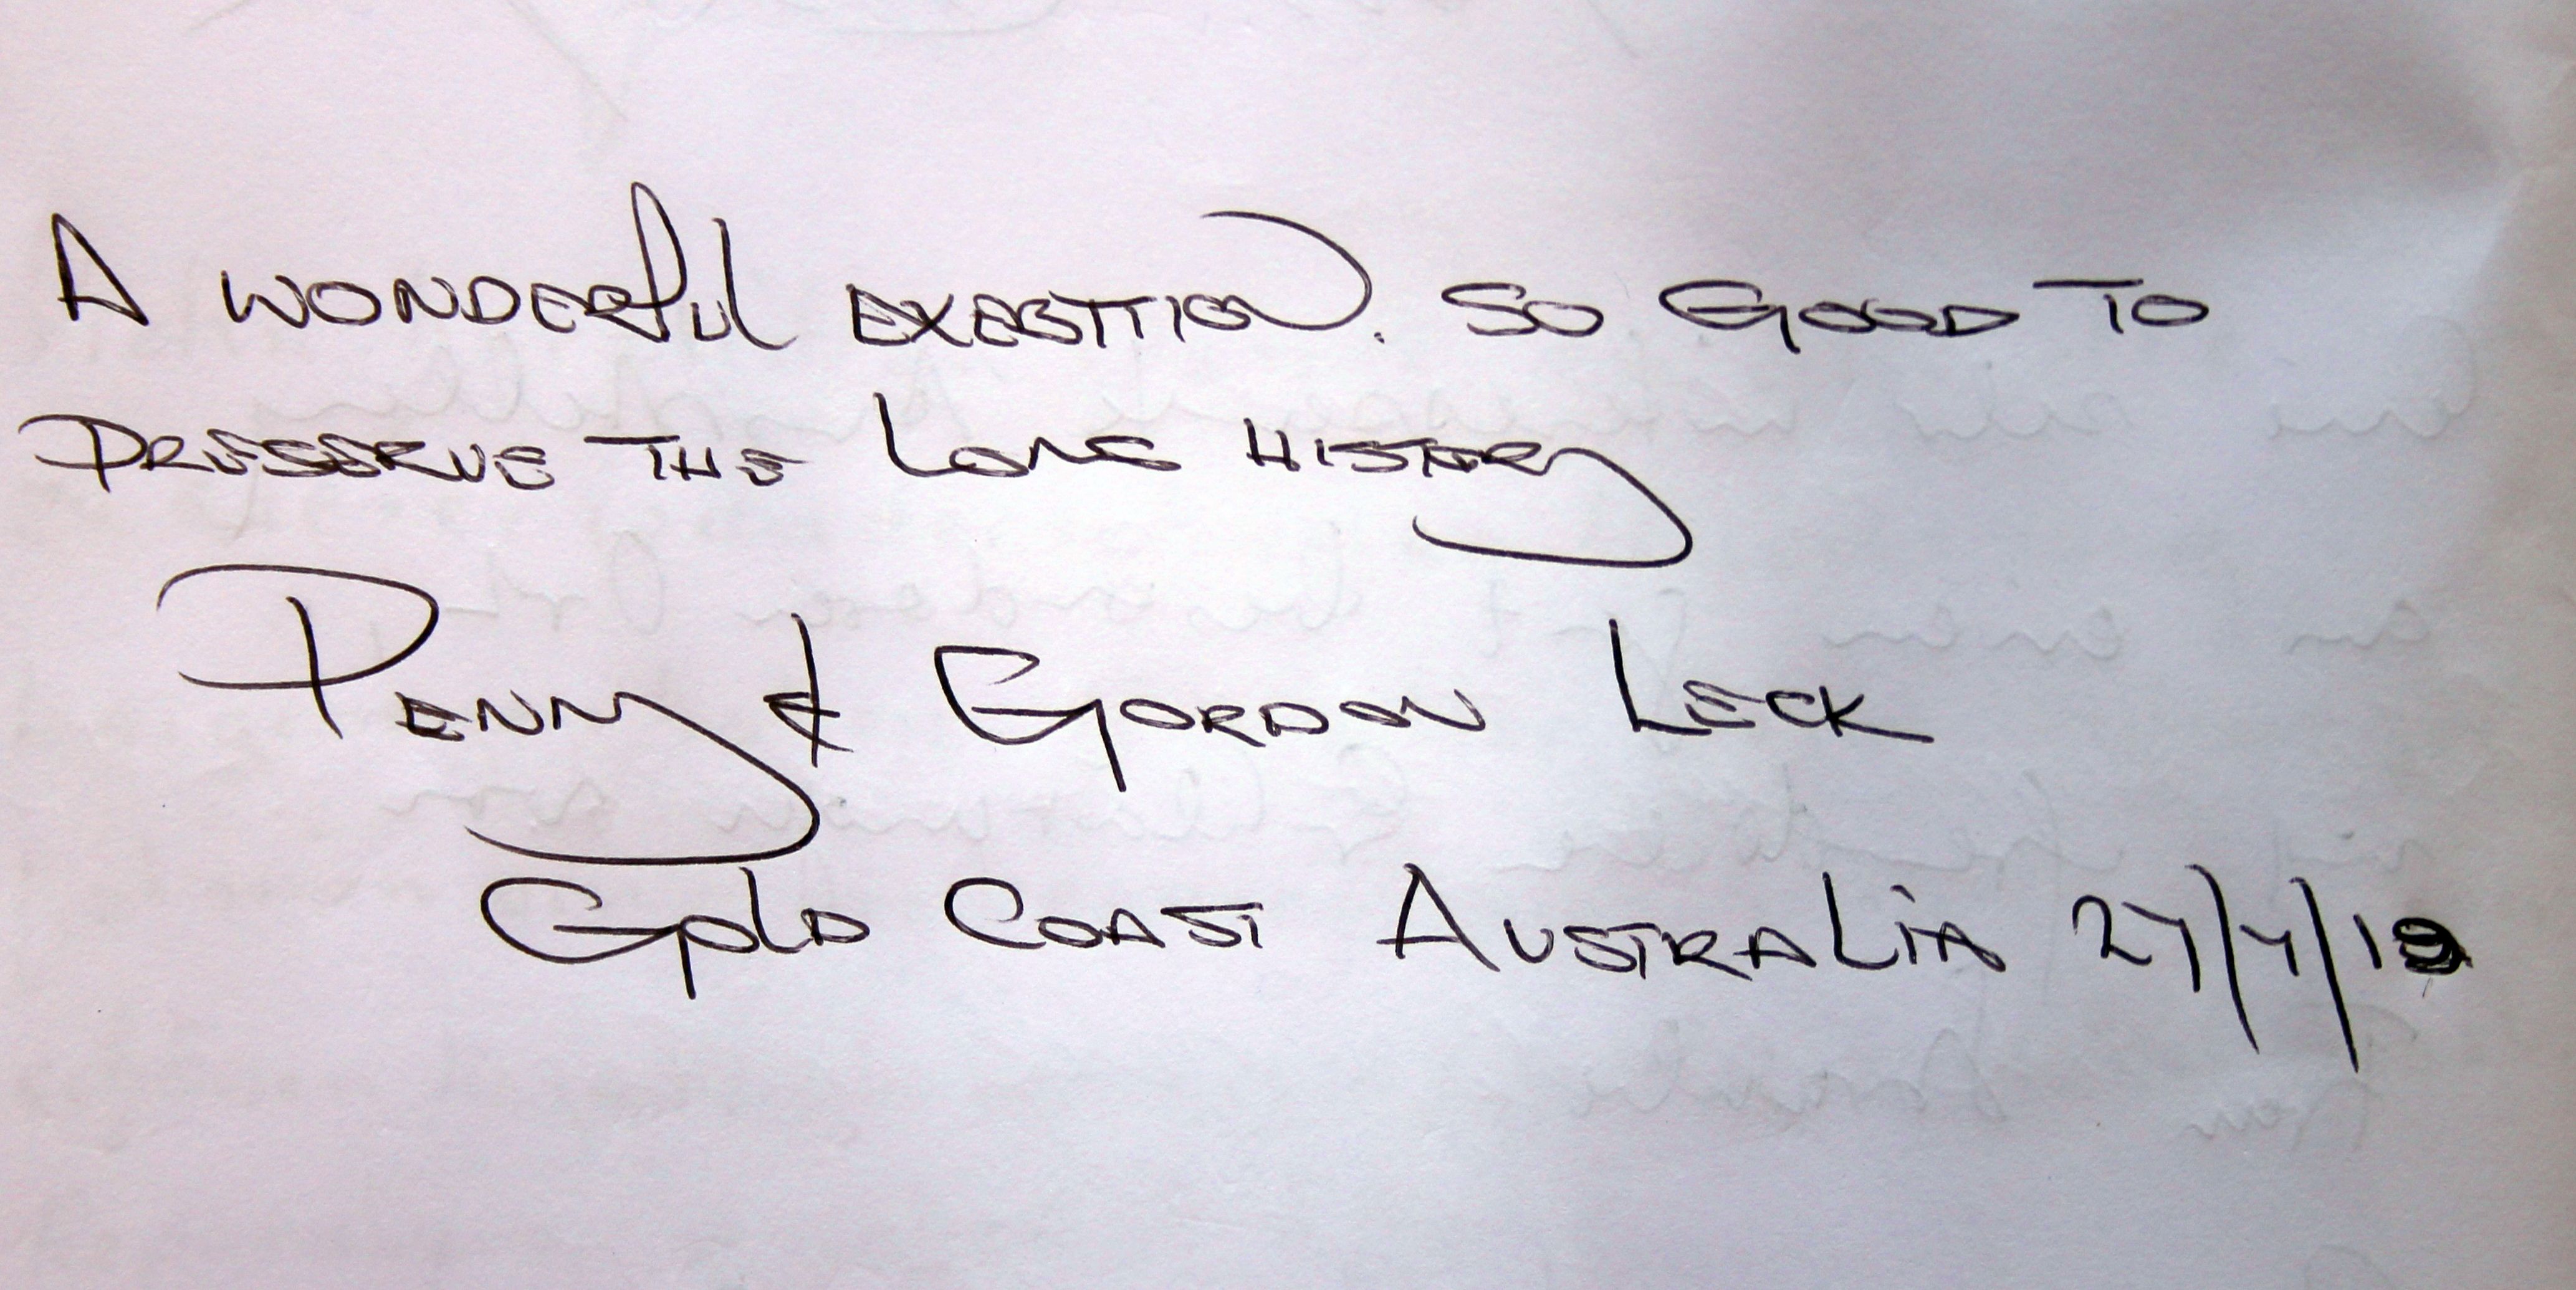 A WONDERFUL EXEBITTION. SO GOOD TO
PRESERVE THE LONG HISTORY
PENNY & GORDON LECK
GOLD COAST AUSTRALIA 27/7/19